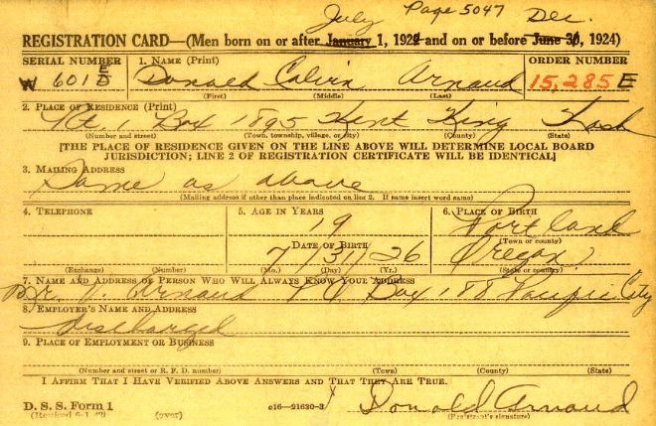 July Page 5047 Dec.
REGISTRATION CARD—(Men born on or after January 1, 192 and on or before June 30, 1924)
SERIAL NUMBER 1. NAME (Print) ORDER NUMBER
W 601 Donald Calvin Arnaud 15,285 E
(First) (Middle) (Last)
2. PLACE OF RESIDENCE (Print)
Rt. 1 Box 1895 Kent King Wash
(Number and street) (Town, township, village, or city) (County) (State)
[THE PLACE OF RESIDENCE GIVEN ON THE LINE ABOVE WILL DETERMINE LOCAL BOARD
JURISDICTION; LINE 2 OF REGISTRATION CERTIFICATE WILL BE IDENTICAL]
3. MAILING ADDRESS
Same as above
(Mailing address if other than place indicated on line 2. If same insert word same)
4. TELEPHONE 5. AGE IN YEARS 6. PLACE OF BIRTH
19 Portland
(Town or county)
DATE OF BIRTH
7/31/26 Oregon
(Exchange) (Number) (Mo.) (Day) (Yr.) (State or country)
7. NAME AND ADDRESS OF PERSON WHO WILL ALWAYS KNOW YOUR ADDRESS
Arnaud P.O. Box 188 Pacific City
8. EMPLOYER'S NAME AND ADDRESS
discharged
9. PLACE OF EMPLOYMENT OR BUSINESS
(Number and street or R. F. D. number) (Town) (County) (State)
I AFFIRM THAT I HAVE VERIFIED ABOVE ANSWERS AND THAT THEY ARE TRUE.
D. S. S. Form 1 c16—21630-3 Donald Arnaud
(over) (Registrant's signature)